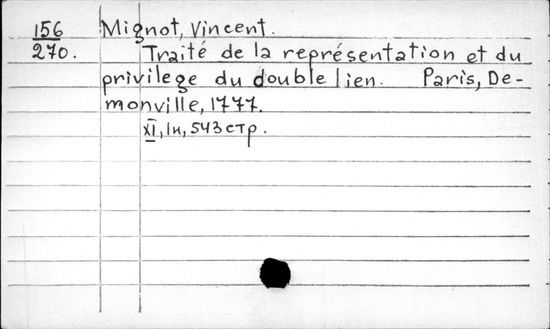 156 Mignot, Vincent.
270. Traité de la représentation et du
privilege du double lien. Paris, De-
monville, 1777.
XI, 1н, 543 стр.